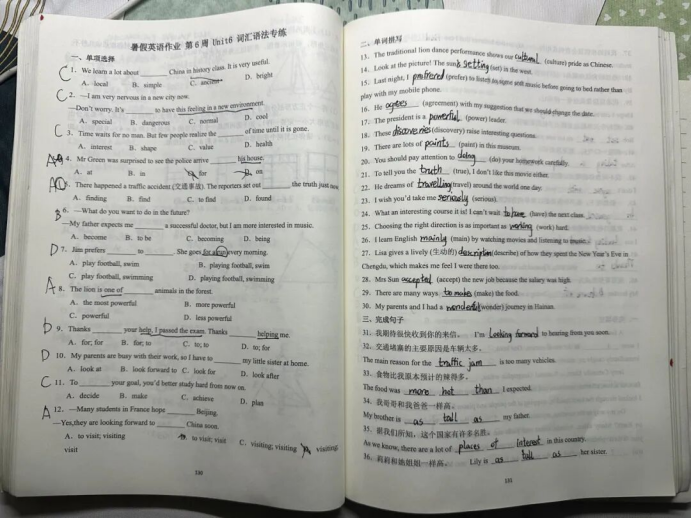 暑假英语作业 第 6 周 Unit6 词汇语法专练
一、单项选择
C 1. We learn a lot about ______ China in history class. It is very useful.
A. local B. simple C. ancient D. bright
C 2. —I am very nervous in a new city now.
—Don't worry. It's ______ to have this feeling in a new environment.
A. special B. dangerous C. normal D. cool
C 3. Time waits for no man. But few people realize the ______ of time until it is gone.
A. interest B. shape C. value D. health
A 4. Mr Green was surprised to see the police arrive ______ his house.
A. at B. in C. for D. on
5. There happened a traffic accident (交通事故). The reporters set out ______ the truth just now.
A. finding B. find C. to find D. found
B 6. —What do you want to do in the future?
—My father expects me ______ a successful doctor, but I am more interested in music.
A. become B. to be C. becoming D. being
D 7. Jim prefers ______ to ______. She goes for a run every morning.
A. play football, swim B. playing football, swim
C. play football, swimming D. playing football, swimming
A 8. The lion is one of ______ animals in the forest.
A. the most powerful B. more powerful
C. powerful D. less powerful
b 9. Thanks ______ your help, I passed the exam. Thanks ______ helping me.
A. for; for B. for; to C. to; to D. to; for
D 10. My parents are busy with their work, so I have to ______ my little sister at home.
A. look at B. look forward to C. look for D. look after
C 11. To ______ your goal, you'd better study hard from now on.
A. decide B. make C. achieve D. plan
A 12. —Many students in France hope ______ Beijing.
—Yes, they are looking forward to ______ China soon.
A. to visit; visiting B. to visit; visit C. visiting; visiting D. visiting;
visit
190
二、单词拼写
13. The traditional lion dance performance shows our cultural (culture) pride as Chinese.
14. Look at the picture! The sun is setting (set) in the west.
15. Last night, I preferred (prefer) to listen to some soft music before going to bed rather than
play with my mobile phone.
16. He agrees (agreement) with my suggestion that we should change the date.
17. The president is a powerful (power) leader.
18. These discoveries (discovery) raise interesting questions.
19. There are lots of paints (paint) in this museum.
20. You should pay attention to doing (do) your homework carefully.
21. To tell you the truth (true), I don't like this movie either.
22. He dreams of travelling (travel) around the world one day.
23. I wish you'd take me seriously (serious).
24. What an interesting course it is! I can't wait to have (have) the next class.
25. Choosing the right direction is as important as working (work) hard.
26. I learn English mainly (main) by watching movies and listening to music.
27. Lisa gives a lively (生动的) description (describe) of how they spent the New Year's Eve in
Chengdu, which makes me feel I were there too.
28. Mrs Sun accepted (accept) the new job because the salary was high.
29. There are many ways to makes (make) the food.
30. My parents and I had a wonderful (wonder) journey in Hainan.
三、完成句子
31. 我期待很快收到你的来信。 I'm Looking forward to hearing from you soon.
32. 交通堵塞的主要原因是车辆太多。
The main reason for the traffic jam is too many vehicles.
33. 食物比我原本预计的辣得多。
The food was more hot than I expected.
34. 我哥哥和我爸爸一样高。
My brother is as tall as my father.
35. 据我们所知，这个国家有许多名胜。
As we know, there are a lot of places of interest in this country.
36. 莉莉和她姐姐一样高。 Lily is as tall as her sister.
191